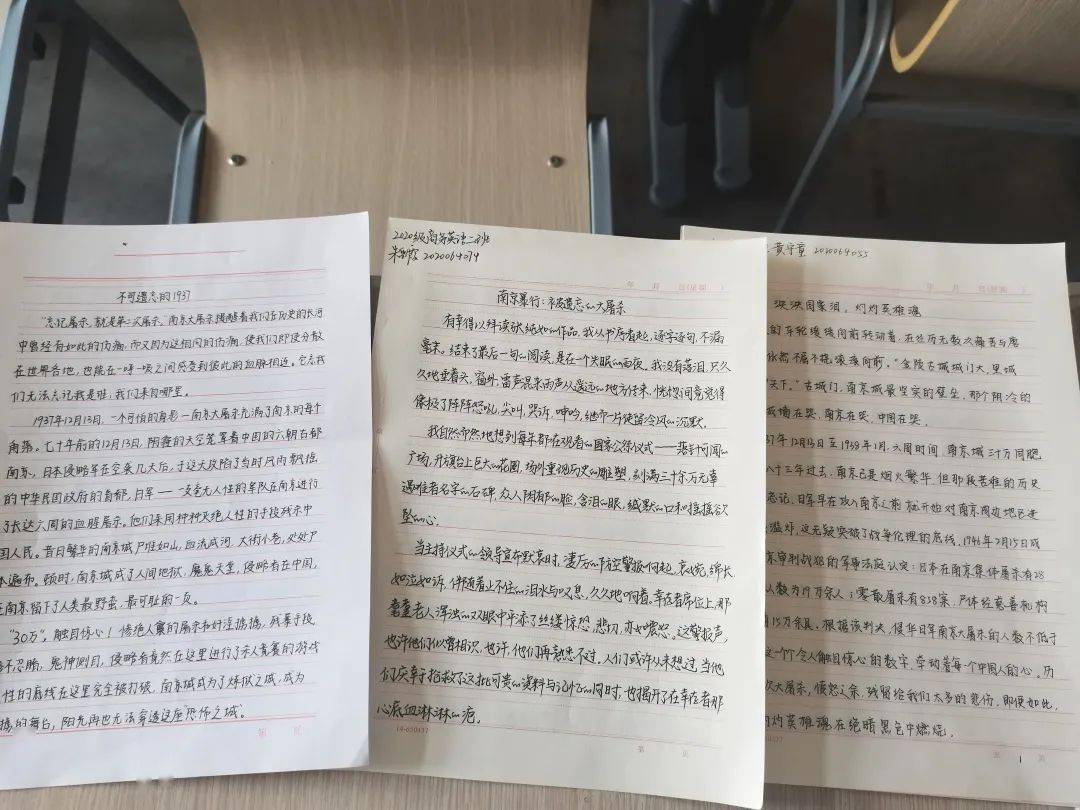 不可遗忘的1937
"忘记屠杀，就是第二次屠杀。南京大屠杀提醒着我们在历史的长河
中曾经有如此的伤痛，而又因为这相同的伤痛，使我们即使分散
在世界各地，也能在一呼一吸之间感受到彼此的血脉相连。它让我
们无法忘记我是谁，我们来自哪里。
1937年12月13日，一个可怕的身影—南京大屠杀充满了南京的每个
角落。七十年前的12月13日，阴霾的天空笼罩着中国的六朝古都
南京，日本侵略军在空袭几天后，于这天攻陷了当时风雨飘摇
的中华民国政府的首都，日军——一支毫无人性的军队在南京进行
了长达六周的血腥屠杀。他们采用种种灭绝人性的手段残杀中
国人民。昔日繁华的南京城尸堆如山，血流成河，大街小巷，处处尸
遍布。顿时，南京城成了人间地狱，魔鬼天堂，侵略者在中国，
在南京留下了人类最野蛮，最可耻的一页。
"30万"，触目惊心！惨绝人寰的屠杀和奸淫掳掠，残暴手段
不忍睹，鬼神侧目，侵略者竟然在这里进行了杀人竞赛的游戏
性的底线在这里完全被打破，南京城成为了炼狱之城，成为
的舞台，阳光再也无法穿透这座"恐怖之城"。
第 页
2020级商务英语二班
朱 2020064079
年 月 日(星期 )
南京暴行：被遗忘的大屠杀
有幸得以拜读张纯如的作品，我从书序看起，逐字逐句，不漏
毫末。结束了最后一句的阅读，是在一个失眠的雨夜，我没有落泪，只久
久地垂着头，窗外，雷声混杂雨声从遥远的地方传来，恍惚间竟觉得
像极了阵阵怒吼，尖叫，哭诉，呻吟，绝而一片使留冷风的沉默。
我自然而然地想到每年都在观看的国家公祭仪式——落针可闻的
广场，升旗台上巨大的花圈，场外重现历史的雕塑，刻满三十余万无辜
遇难者名字的石碑，众人阴郁的脸，含泪的眼，缄默的口和摇摇欲
坠的心。
当主持仪式的领导宣布默哀时，凄厉的防空警报响起，哀婉，绵长，
如泣如诉，伴随着止不住的泪水与叹息，久久地响着。幸存者席位上，那
耄耋老人浑浊的双眼中平添了丝缕惊恐，悲切，亦或震怒。这警报声，
也许他们似曾相识，也许，他们再熟悉不过。人们或许从未想过，当他
们庆幸抢救下这批可贵的资料与记忆的同时，也揭开了在幸存者那
心底血淋淋的疤。
第 页
黄守童 2020064055
年 月 日(星期 )
泱泱国家泪，灼灼英雄魂
的车轮缓缓向前转动着，在经历无数次痛苦与磨
依然不屈不挠，滚滚向前。"金陵古城城门大，里城
天下。"古城门，南京城最坚实的壁垒，那个阴冷的
城墙在哭，南京在哭，中国在哭。
37年12月13日至1938年1月，六周时间，南京城三十万同胞
八十三年过去，南京已是烟火繁华，但那段苦难的历史
忘记，日军早在攻入南京之前就开始对南京周边地区进
滥炸，这无疑突破了战争伦理的底线。1946年2月15日成
京审判战犯的军事法庭认定：日本在南京集体屠杀有28
人数为19万余人；零散屠杀有858案，尸体经慈善机构
15万余具，根据该判决，侵华日军南京大屠杀的人数不低于
这一个令人触目惊心的数字，牵动着每个中国人的心。历
次大屠杀，愤怒之余，残留给我们太多的悲伤，即便如此，
灼英雄魂在绝暗黑色中燃烧。
页
1